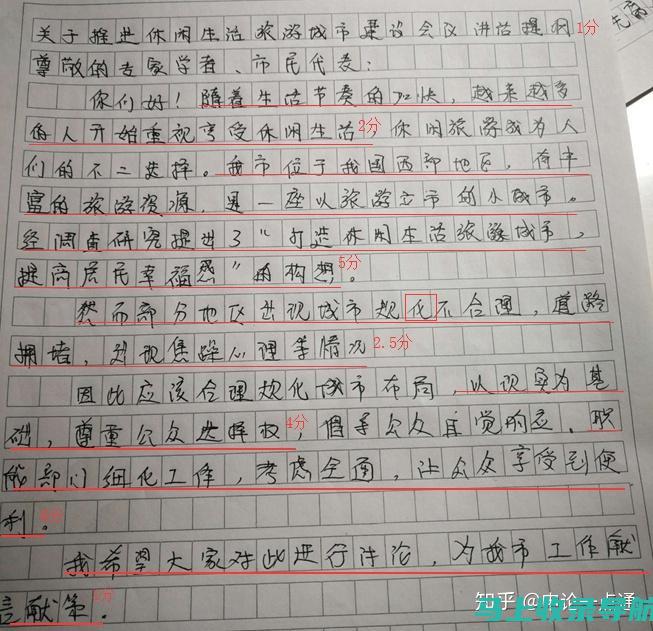 关于推进休闲生活旅游城市建设会议讲话提纲 1分
尊敬的专家学者、市民代表：
你们好！随着生活节奏的加快，越来越多
的人开始重视享受休闲生活 2分 休闲旅游成为人
们的不二选择。我市位于我国西部地区，有丰
富的旅游资源，是一座以旅游立市的小城市。
经调查研究提出了"打造休闲生活旅游城市，
提高居民幸福感"的构想。 5分
然而部分地区出现城市规化不合理，道路
拥堵，出现集跺心理等情况 2.5分
因此应该合理规化城市布局，以现实为基
础，尊重公众选择权 4分，倡导公众自觉响应、职
能部门细化工作，考虑全通，让公众享受到便
利。
我希望大家对此进行讨论，为我市工作献
言献策。
知乎 @申论一点通
马上收录导航